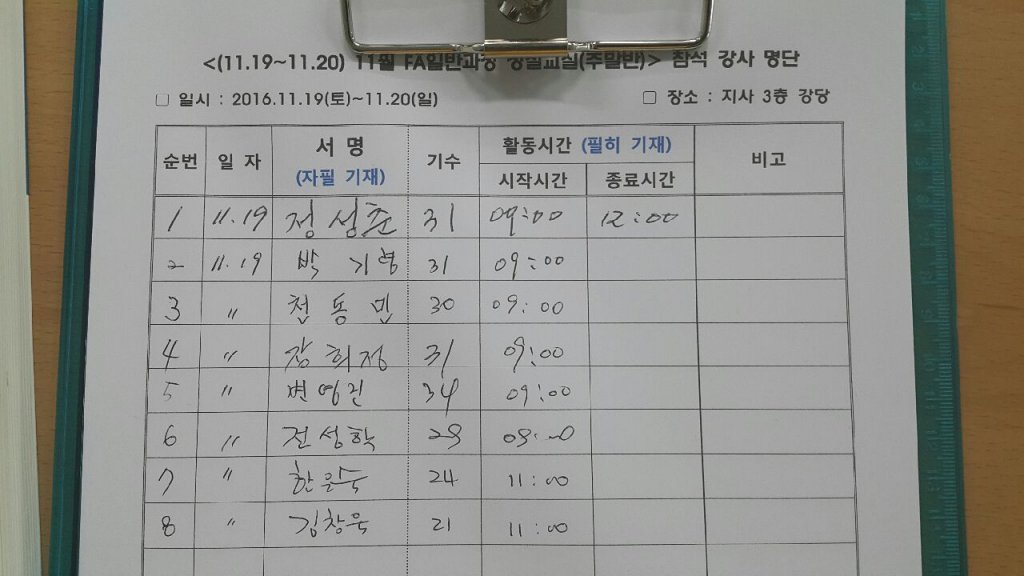 <(11.19~11.20) 11월 FA일반과정 (주말반)> 참석 강사 명단
□ 일시 : 2016.11.19(토)~11.20(일) □ 장소 : 지사 3층 강당
순번 일 자 서 명 (자필 기재) 기수 활동시간 (필히 기재) 비고
시작시간 종료시간
1 11.19 정성훈 31 09:00 12:00
2 11.19 박 기형 31 09:00
3 〃 천동민 30 09:00
4 〃 장희정 31 09:00
5 〃 변영진 34 09:00
6 〃 전성학
7 〃 한은숙 24 11:00
8 〃 김창욱 21 11:00